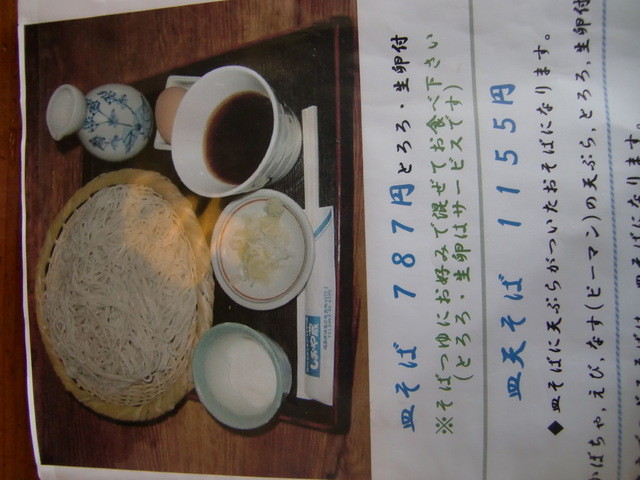 皿そば 787円 とろろ・生卵付
※そばつゆにお好みで混ぜてお食べ下さい
(とろろ・生卵はサービスです)
皿天そば 1155円
◆皿そばに天ぷらがついたおそばになります。
かぼちゃ、えび、なす(ピーマン)の天ぷら、とろろ、生卵付